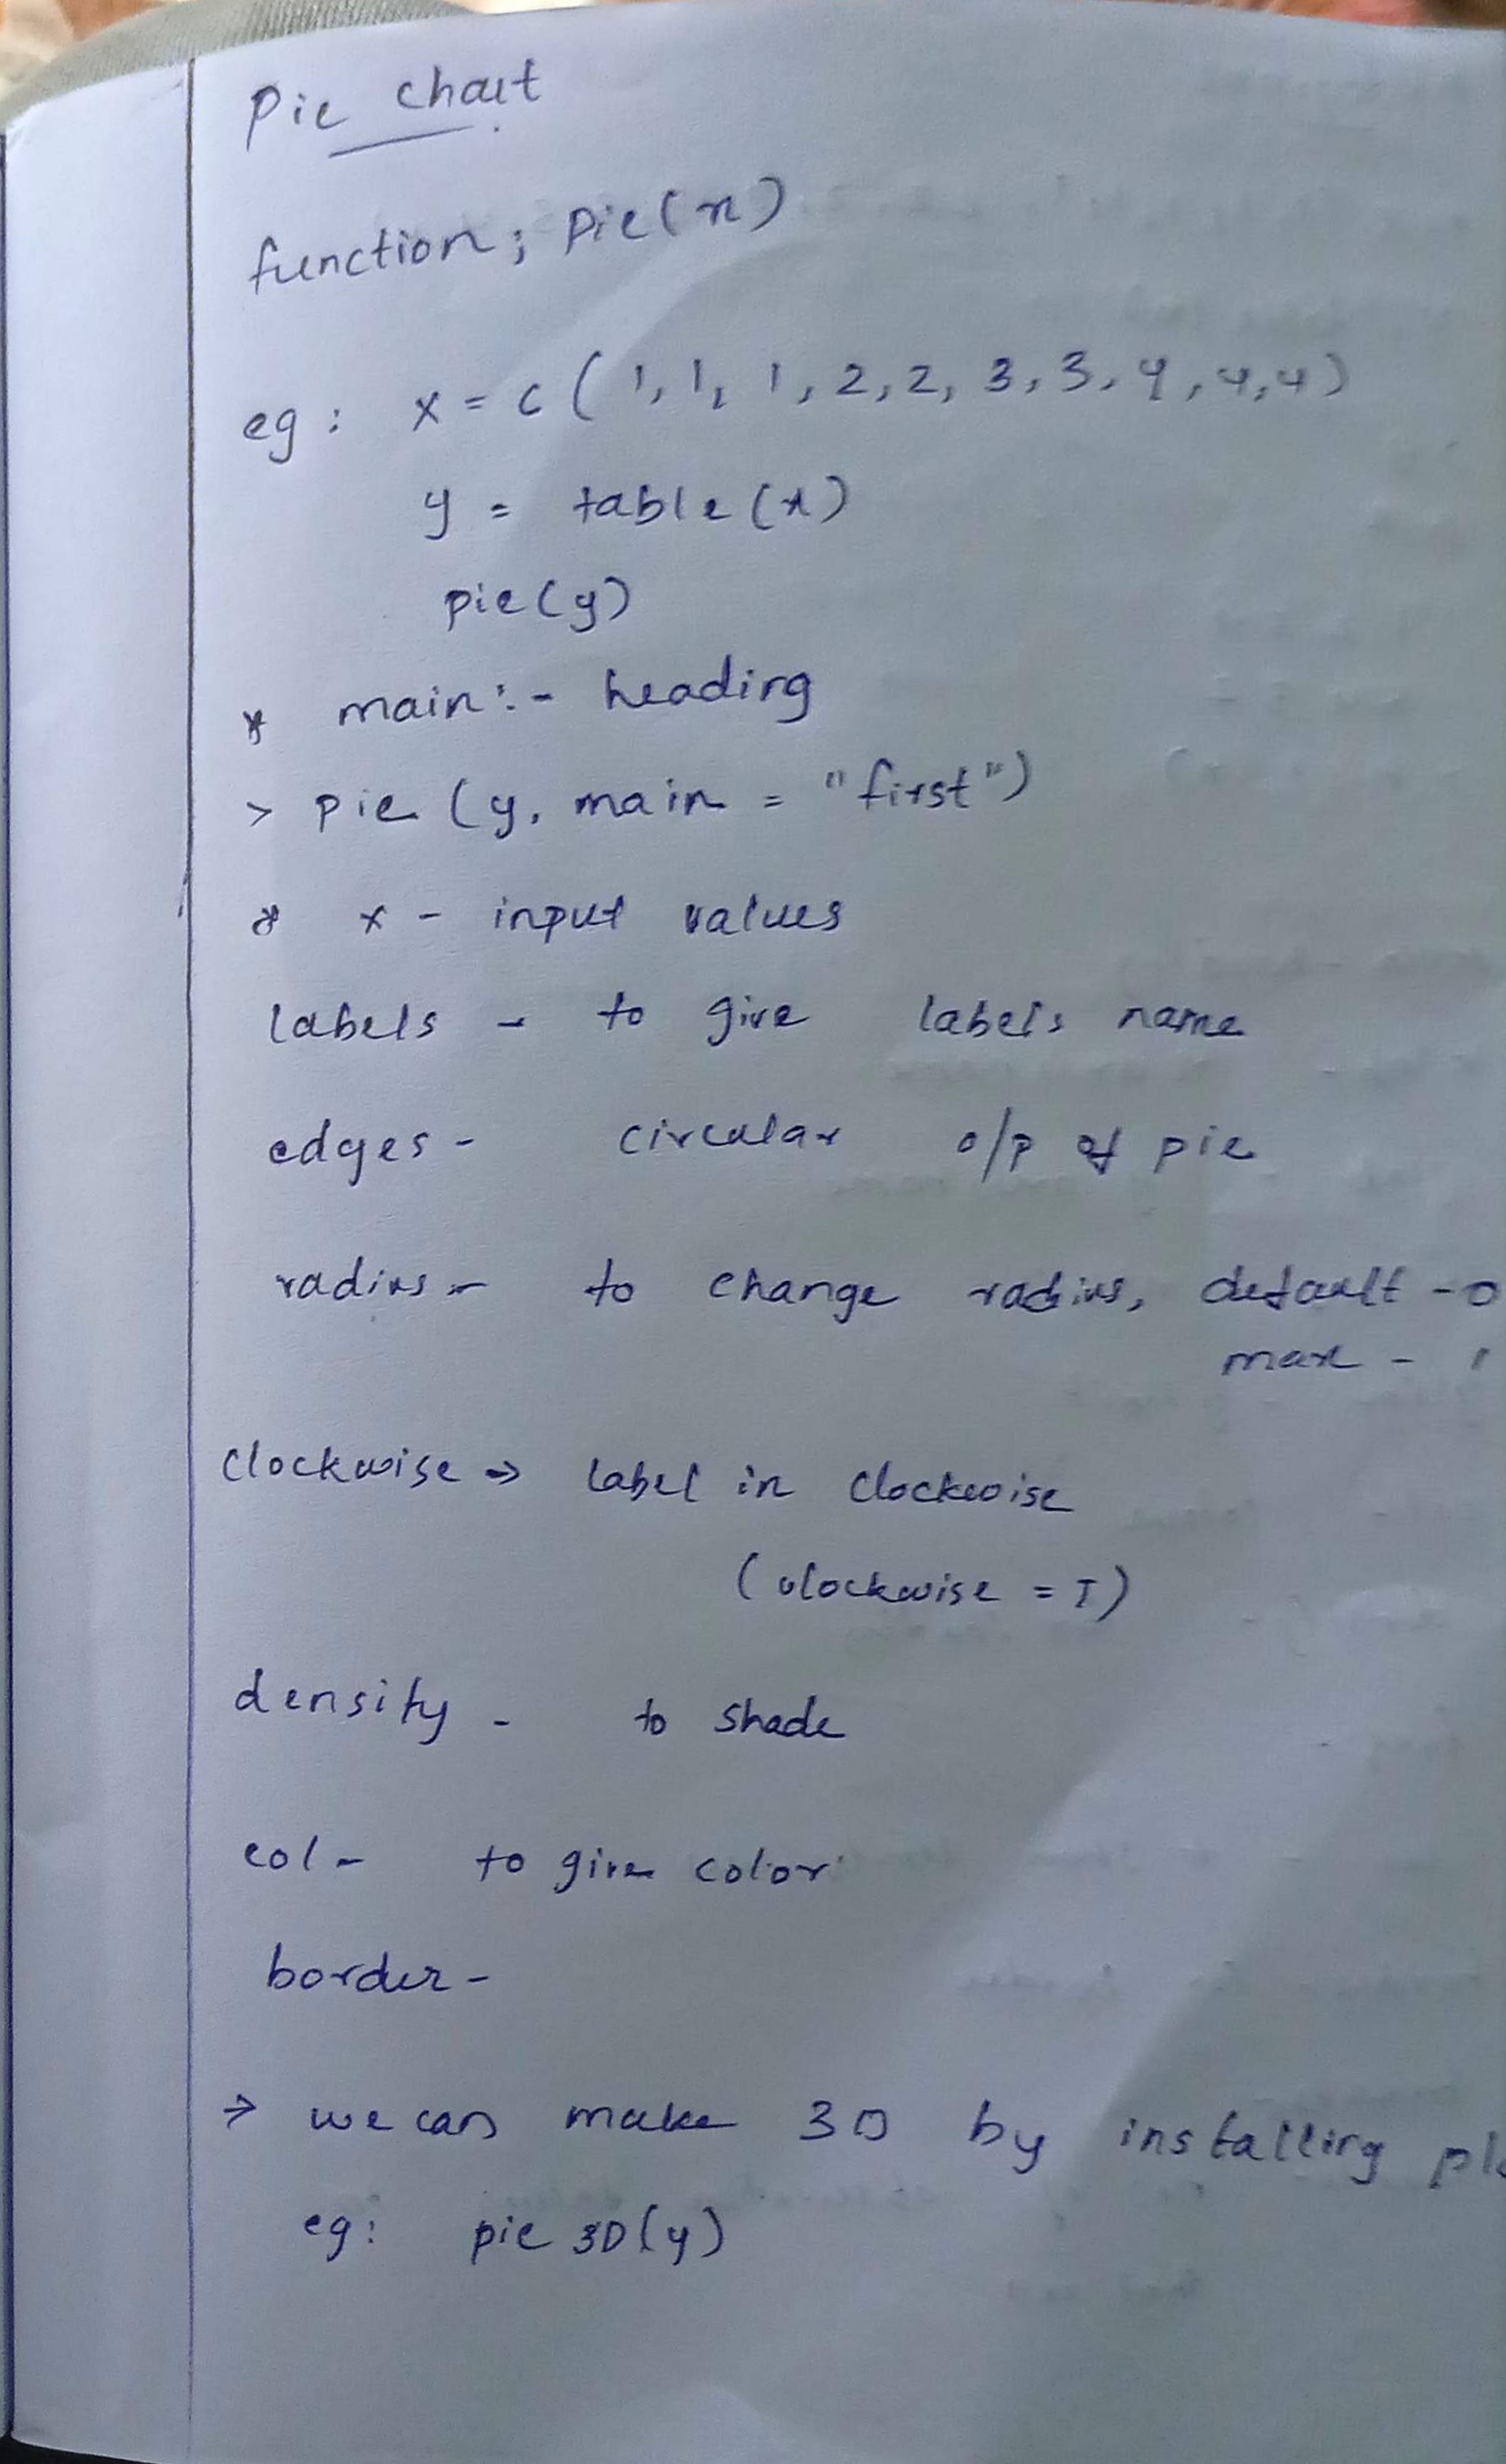 Pie chart
function; Pie(x)
eg: x = c(1,1,1,2,2,3,3,4,4,4)
y = table(x)
pie(y)
* main:- heading
> pie (y, main = "first")
* x - input values
labels - to give labels name
edges - circular o/p of pie
radius - to change radius, default - 0
max - 1
clockwise → label in clockwise
(clockwise = T)
density - to shade
col - to give color
border -
→ we can make 3D by installing
eg: pie 3D(y)